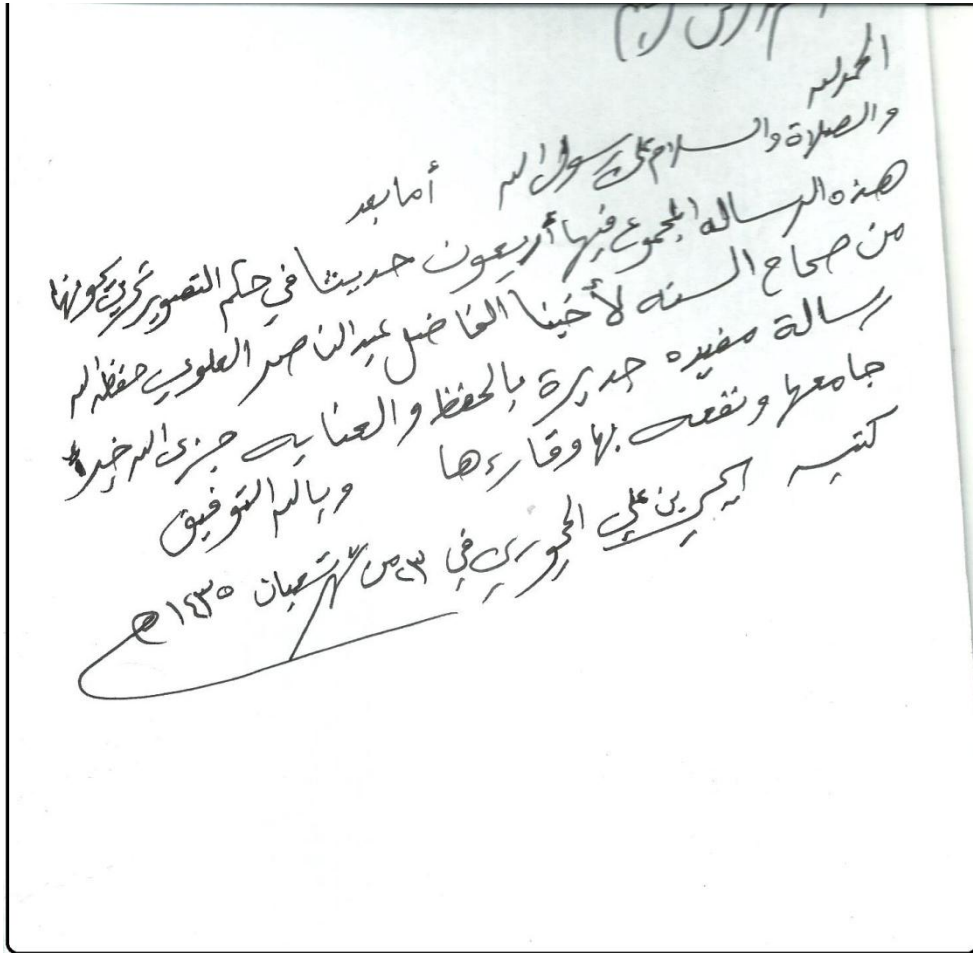 الحمد لله
والصلاة والسلام على رسول الله أما بعد
هذه الرساله المجموع فيها أربعون حديثا في حكم التصوير
من صحاح السنه لأخينا الفاضل عبد الناصر العلوي حفظه الله
رسالة مفيده جديرة بالحفظ والعنايه جزى الله خيرا
جامعها ونفعه بها وقارءها وبالله التوفيق
كتبه يحيى بن علي الحجوري في ٢٣ من شهر شعبان ١٤٣٥ه